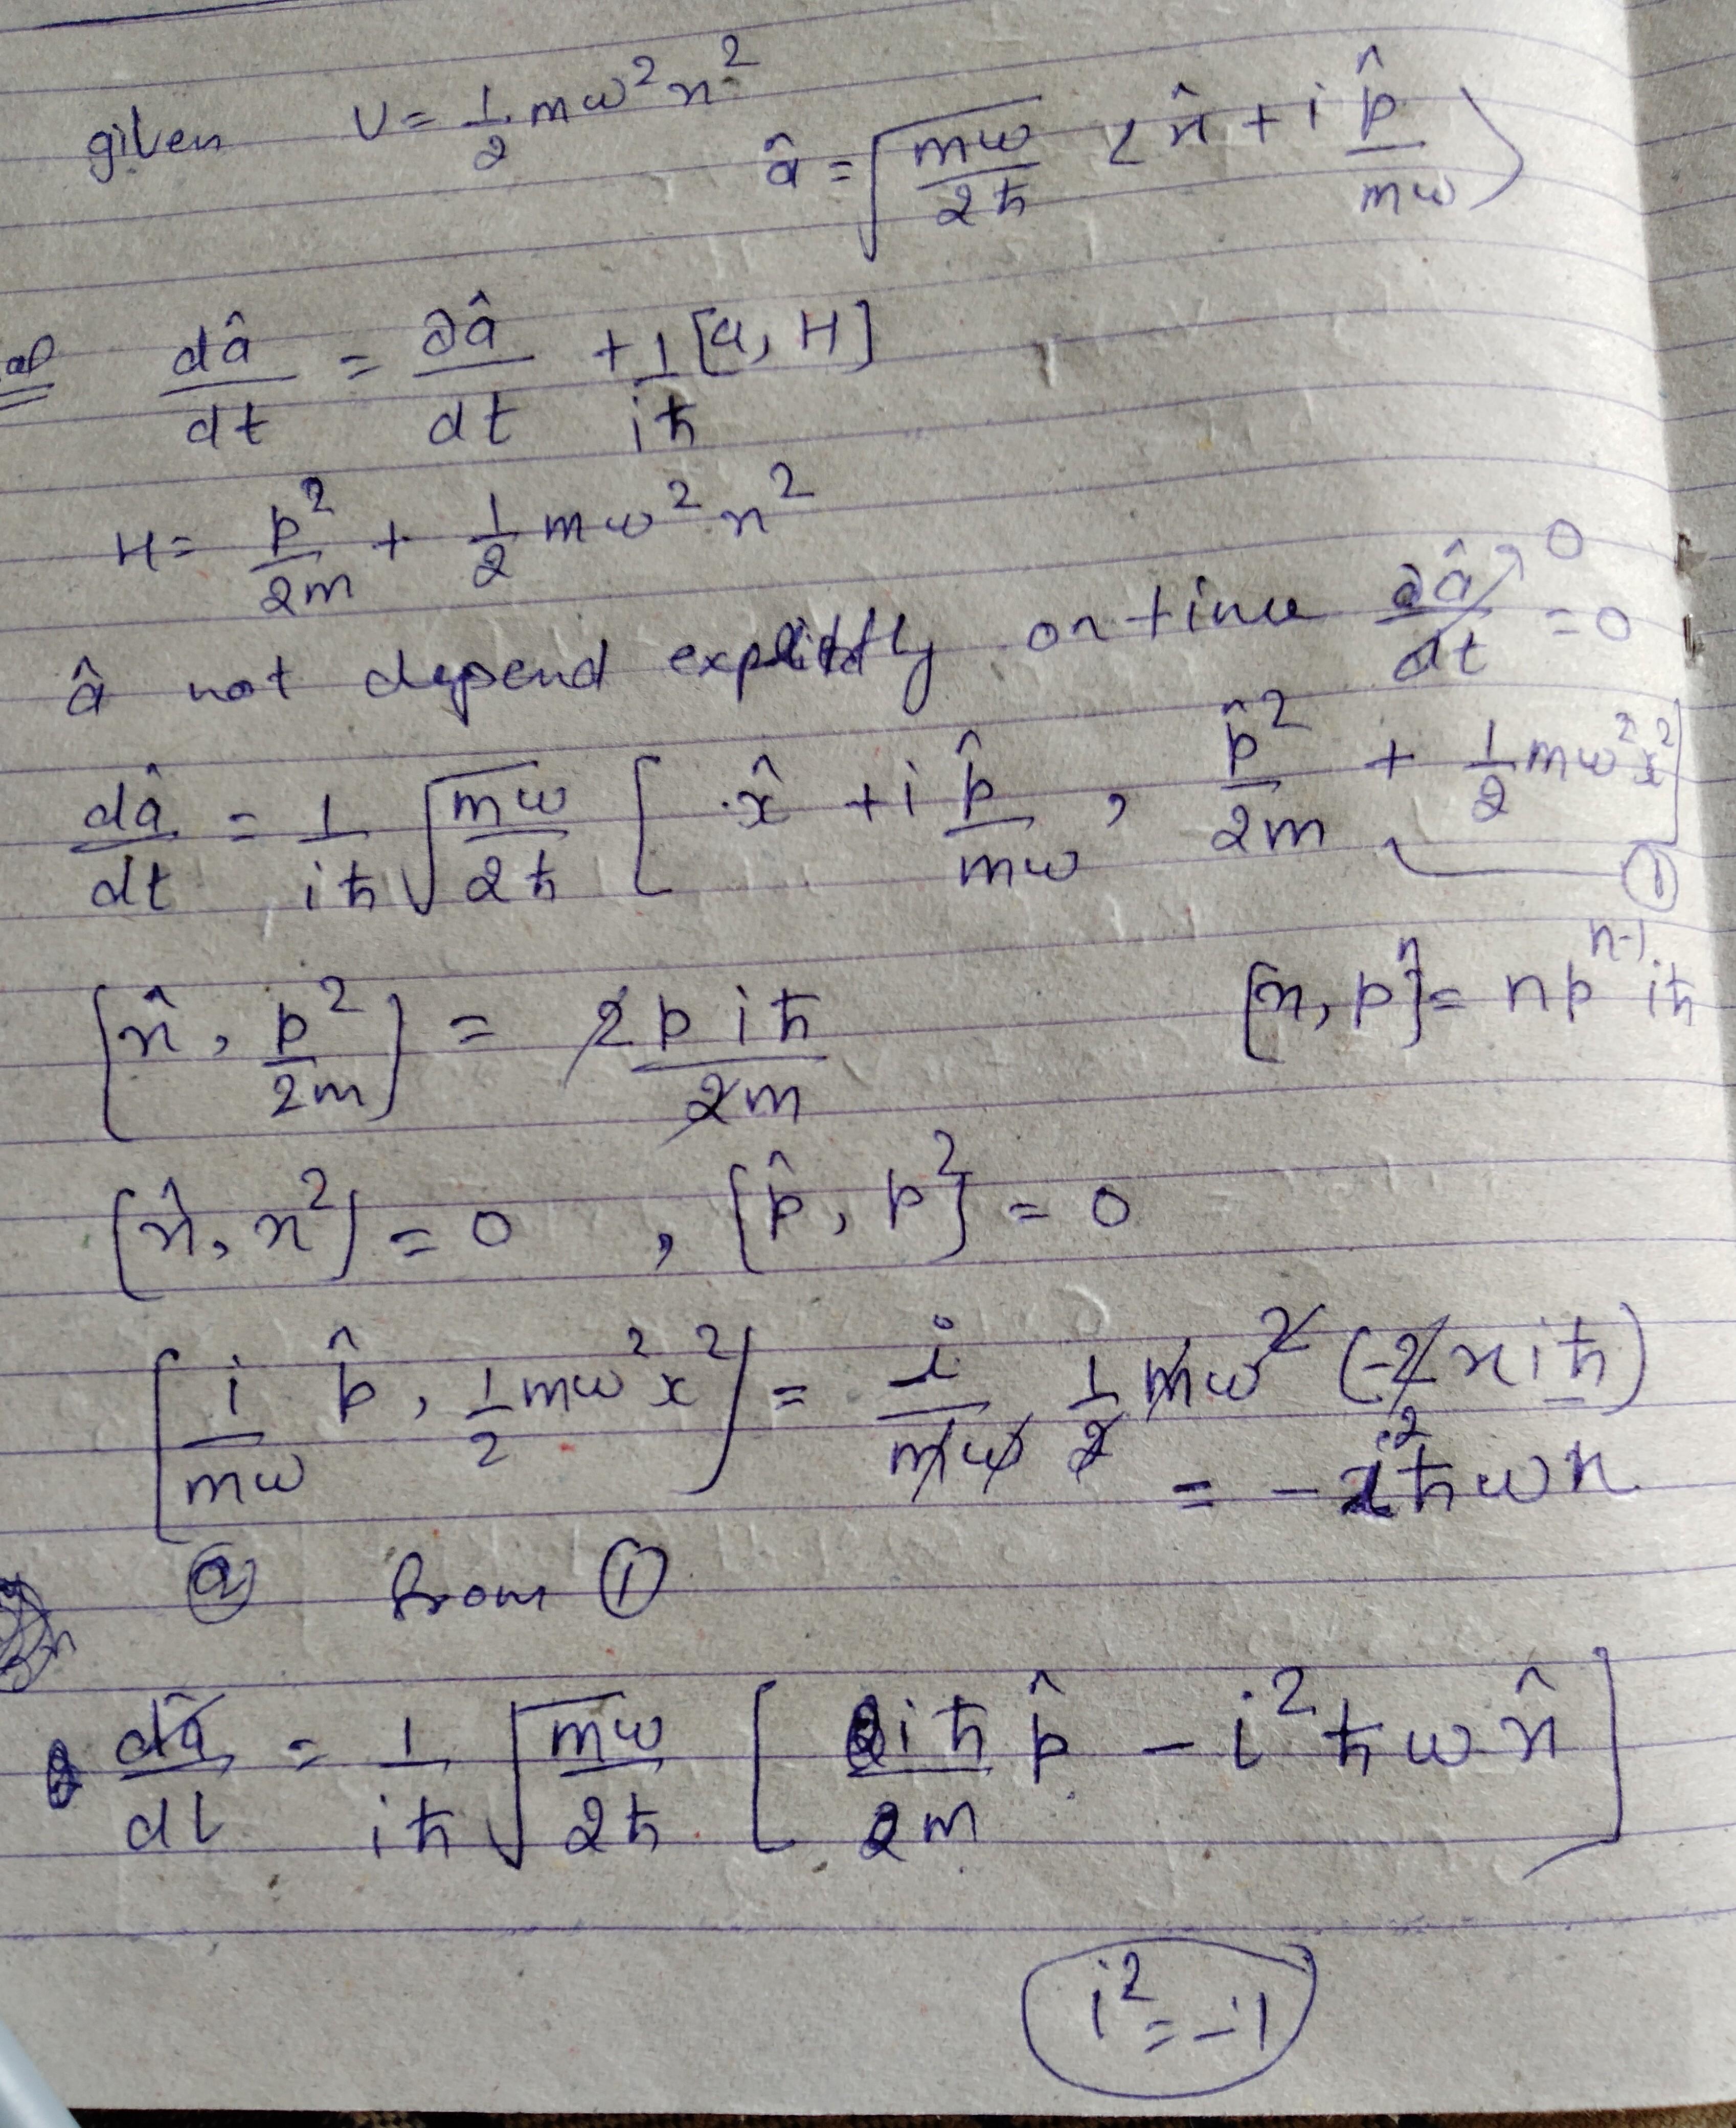 given U = 1/2 mω² x²
â = √(mω/2ħ) (x̂ + i p̂/mω)
dâ/dt = ∂â/dt + 1/iħ [a, H]
H = p²/2m + 1/2 mω² x²
â not depend explicitly on time ∂â/dt ↗0 = 0
dâ/dt = 1/iħ √(mω/2ħ) [x̂ + i p̂/mω, p̂²/2m + 1/2 mω² x²] ①
[x̂, p²/2m] = 2p iħ/2m [x, pⁿ] = n pⁿ⁻¹ iħ
[x̂, x²] = 0 , [p̂, p²] = 0
[i/mω p̂, 1/2 mω² x²] = i/mω 1/2 mω² (-2x iħ)
= - i²ħωx
ⓐ from ①
dâ/dt = 1/iħ √(mω/2ħ) [iħ/m p̂ - i² ħωx̂]
i² = -1